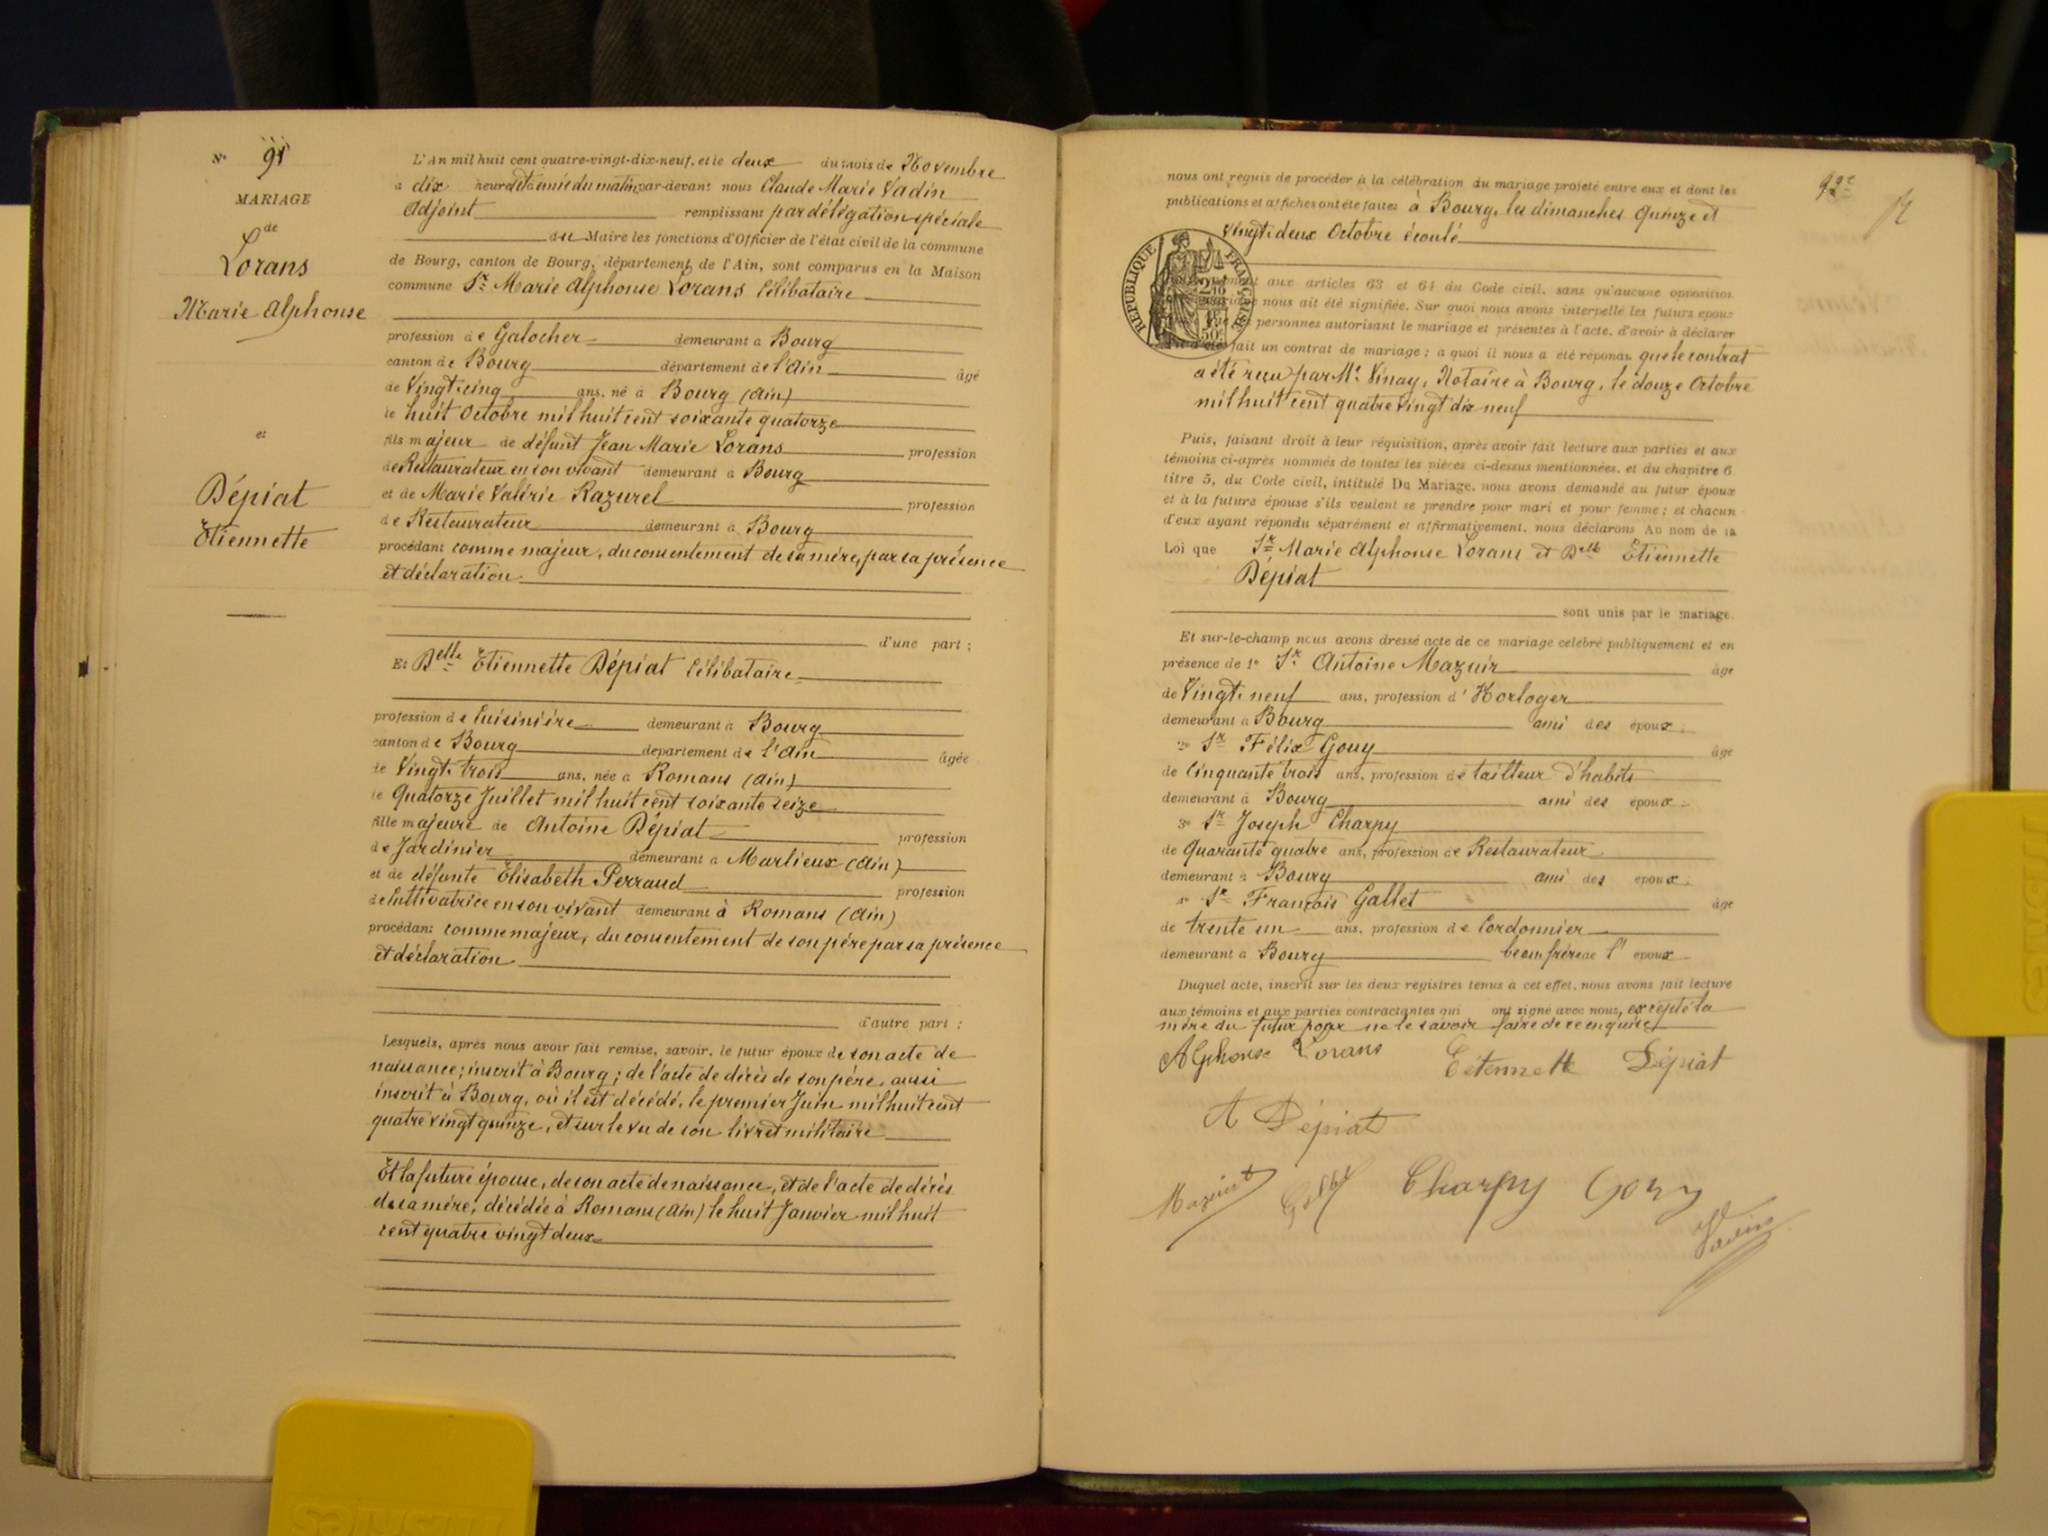 N° 91
MARIAGE
de
Lorans
Marie Alphonse
et
Dépiat
Etiennette
L'An mil huit cent quatre-vingt-dix-neuf, et le deux du mois de Novembre
à dix heures et demie du matin, par-devant nous Claude Marie Vadin
Adjoint remplissant par délégation spéciale
du Maire les fonctions d'Officier de l'état civil de la commune
de Bourg, canton de Bourg, département de l'Ain, sont comparus en la Maison
commune Sr Marie Alphonse Lorans Célibataire
profession de Galocher demeurant à Bourg
canton de Bourg département de l'Ain âgé
de Vingt-cinq ans, né à Bourg (Ain)
le huit Octobre mil huit cent soixante quatorze
fils majeur de défunt Jean Marie Lorans profession
de Restaurateur en son vivant demeurant à Bourg
et de Marie Valérie Razurel profession
de Restaurateur demeurant à Bourg
procédant comme majeur, du consentement de sa mère, par sa présence
et déclaration
d'une part ;
Et Delle Etiennette Dépiat Célibataire
profession de Cuisinière demeurant à Bourg
canton de Bourg département de l'Ain âgée
de Vingt-trois ans, née à Romans (Ain)
le Quatorze Juillet mil huit cent soixante seize
fille majeure de Antoine Dépiat profession
de Jardinier demeurant à Marlieux (Ain)
et de défunte Elisabeth Perraud profession
de Cultivatrice en son vivant demeurant à Romans (Ain)
procédant comme majeur, du consentement de son père par sa présence
et déclaration
d'autre part ;
Lesquels, après nous avoir fait remise, savoir, le futur époux de son acte de
naissance ; inscrit à Bourg ; de l'acte de décès de son père, aussi
inscrit à Bourg, où il est décédé, le premier Juin mil huit cent
quatre vingt quinze, et sur le vu de son livret militaire
Et la future épouse, de son acte de naissance, et de l'acte de décès
de sa mère, décédée à Romans (Ain) le huit Janvier mil huit
cent quatre vingt deux
nous ont requis de procéder à la célébration du mariage projeté entre eux et dont les
publications et affiches ont été faites à Bourg, les dimanches Quinze et
Vingt-deux Octobre écoulé
RÉPUBLIQUE FRANÇAISE
50c
aux articles 63 et 64 du Code civil, sans qu'aucune opposition
nous ait été signifiée. Sur quoi nous avons interpellé les futurs époux
personnes autorisant le mariage et présentes à l'acte, d'avoir à déclarer
fait un contrat de mariage ; à quoi il nous a été répondu que le contrat
a été reçu par Me Vinay, Notaire à Bourg, le douze Octobre
mil huit cent quatre vingt dix neuf
Puis, faisant droit à leur réquisition, après avoir fait lecture aux parties et aux
témoins ci-après nommés de toutes les pièces ci-dessus mentionnées, et du chapitre 6
titre 5, du Code civil, intitulé Du Mariage, nous avons demandé au futur époux
et à la future épouse s'ils veulent se prendre pour mari et pour femme ; et chacun
d'eux ayant répondu séparément et affirmativement, nous déclarons Au nom de la
Loi que Sr Marie Alphonse Lorans et Delle Etiennette
Dépiat
sont unis par le mariage.
Et sur-le-champ nous avons dressé acte de ce mariage célébré publiquement et en
présence de 1° Sr Antoine Mazuir âgé
de Vingt-neuf ans, profession d'Horloger
demeurant à Bourg ami des époux.
2° Sr Félix Gouy âgé
de Cinquante trois ans, profession de tailleur d'habits
demeurant à Bourg ami des époux
3° Sr Joseph Charpy
de Quarante quatre ans, profession de Restaurateur
demeurant à Bourg ami des époux.
4° Sr François Gallet âgé
de trente un ans, profession de Cordonnier
demeurant à Bourg beau frère de l'époux
Duquel acte, inscrit sur les deux registres tenus à cet effet, nous avons fait lecture
aux témoins et aux parties contractantes qui ont signé avec nous, excepté la
mère du futur pour ne le savoir faire de ce enquise
Alphonse Lorans Etiennette Dépiat
A Dépiat
Charpy Gouy
Vadin